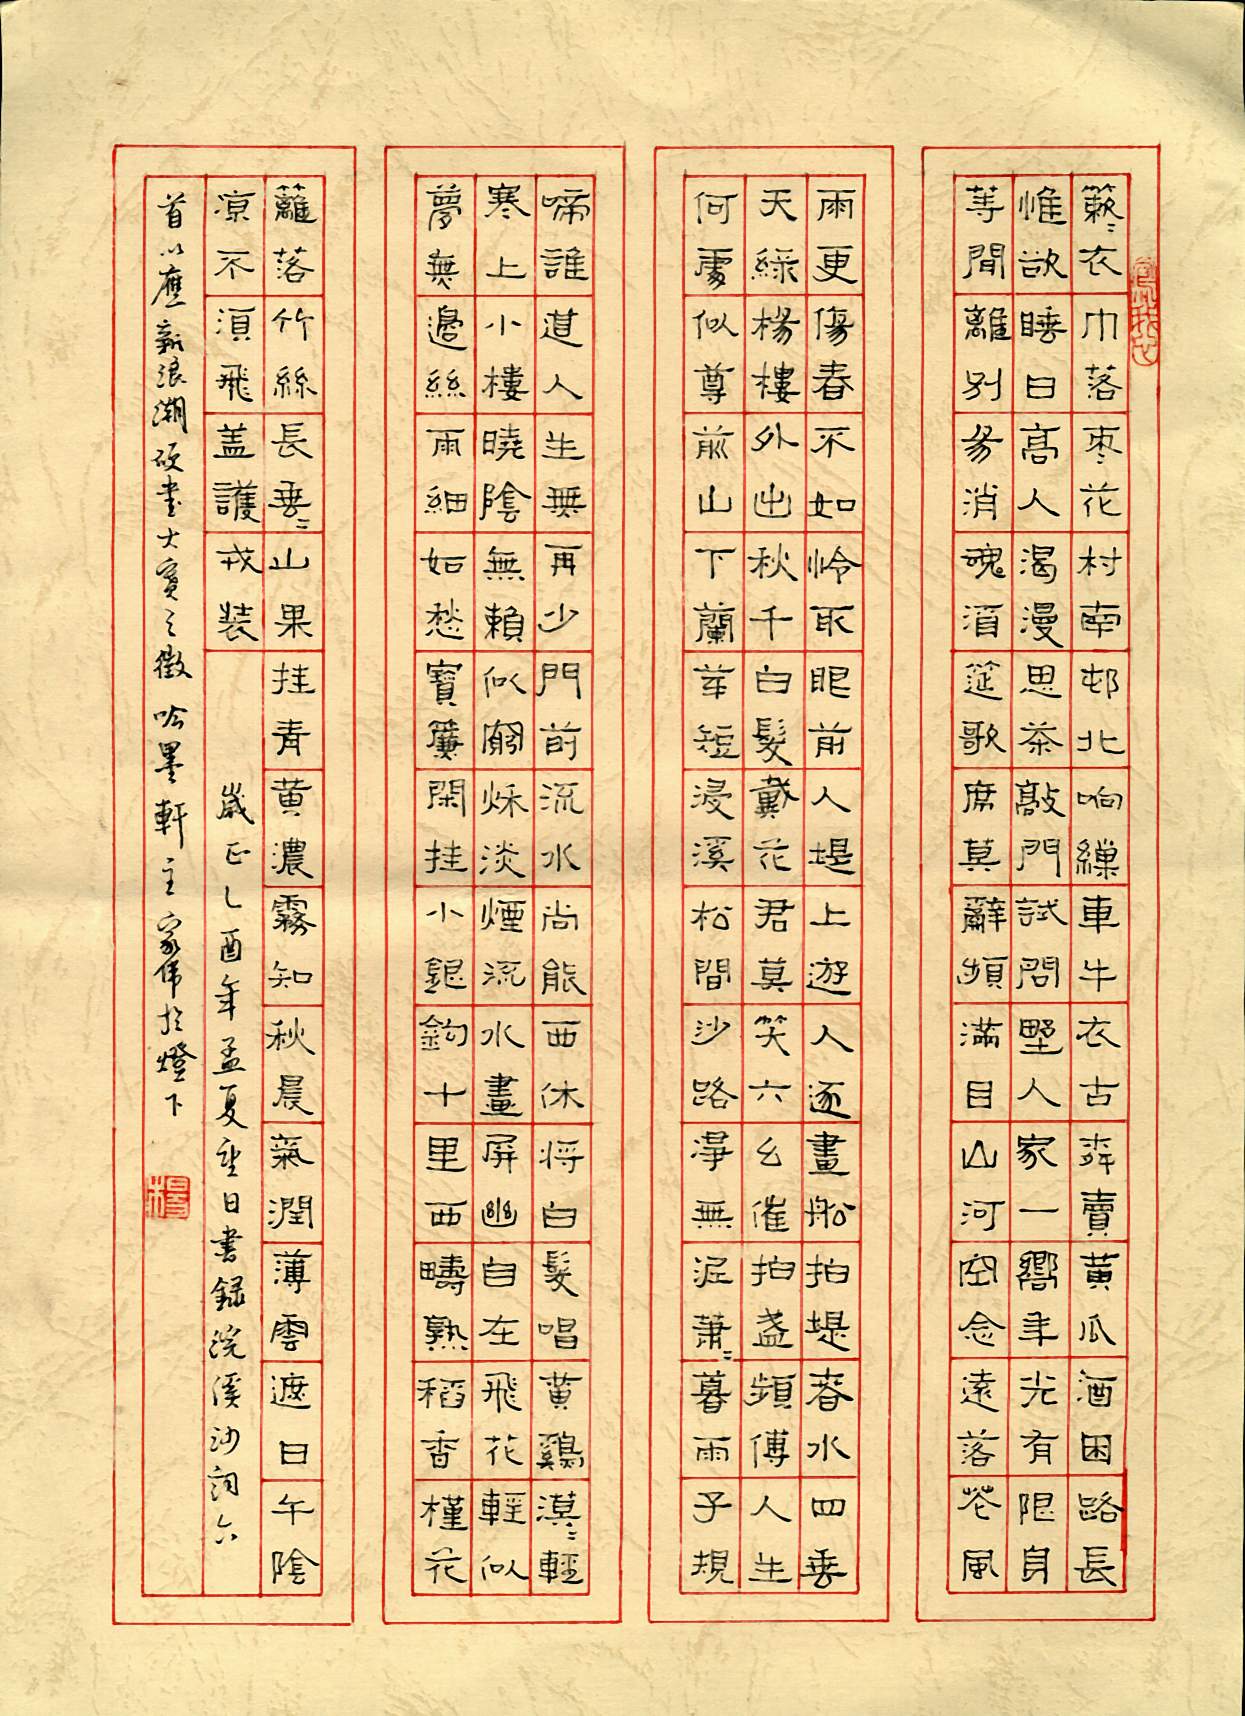 簌〻衣巾落枣花村南邨北响繰車牛衣古柳賣黃瓜酒困路長
惟欲睡日高人渴漫思茶敲門試問野人家一嚮年光有限身
等閒離別易消魂酒筵歌席莫辭頻滿目山河空念遠落花風
雨更傷春不如怜取眼前人堤上遊人逐畫船拍堤春水四垂
天綠楊樓外出秋千白髮戴花君莫笑六幺催拍盞頻傳人生
何處似尊前山下蘭芽短浸溪松間沙路淨無泥蕭〻暮雨子規
啼誰道人生無再少門前流水尚能西休將白髮唱黃鷄漠〻輕
寒上小樓曉陰無賴似窮秋淡煙流水畫屏幽自在飛花輕似
夢無邊絲雨細如愁寶簾閑挂小銀鈎十里西疇熟稻香槿花
籬落竹絲長垂〻山果挂青黃濃霧知秋晨氣潤薄雲遮日午陰
涼不須飛蓋護戎裝 歲正乙酉年孟夏望日書錄浣溪沙詞六
首以應新浪潮硬書大賽之徵 吟墨軒主家偉於燈下
楊